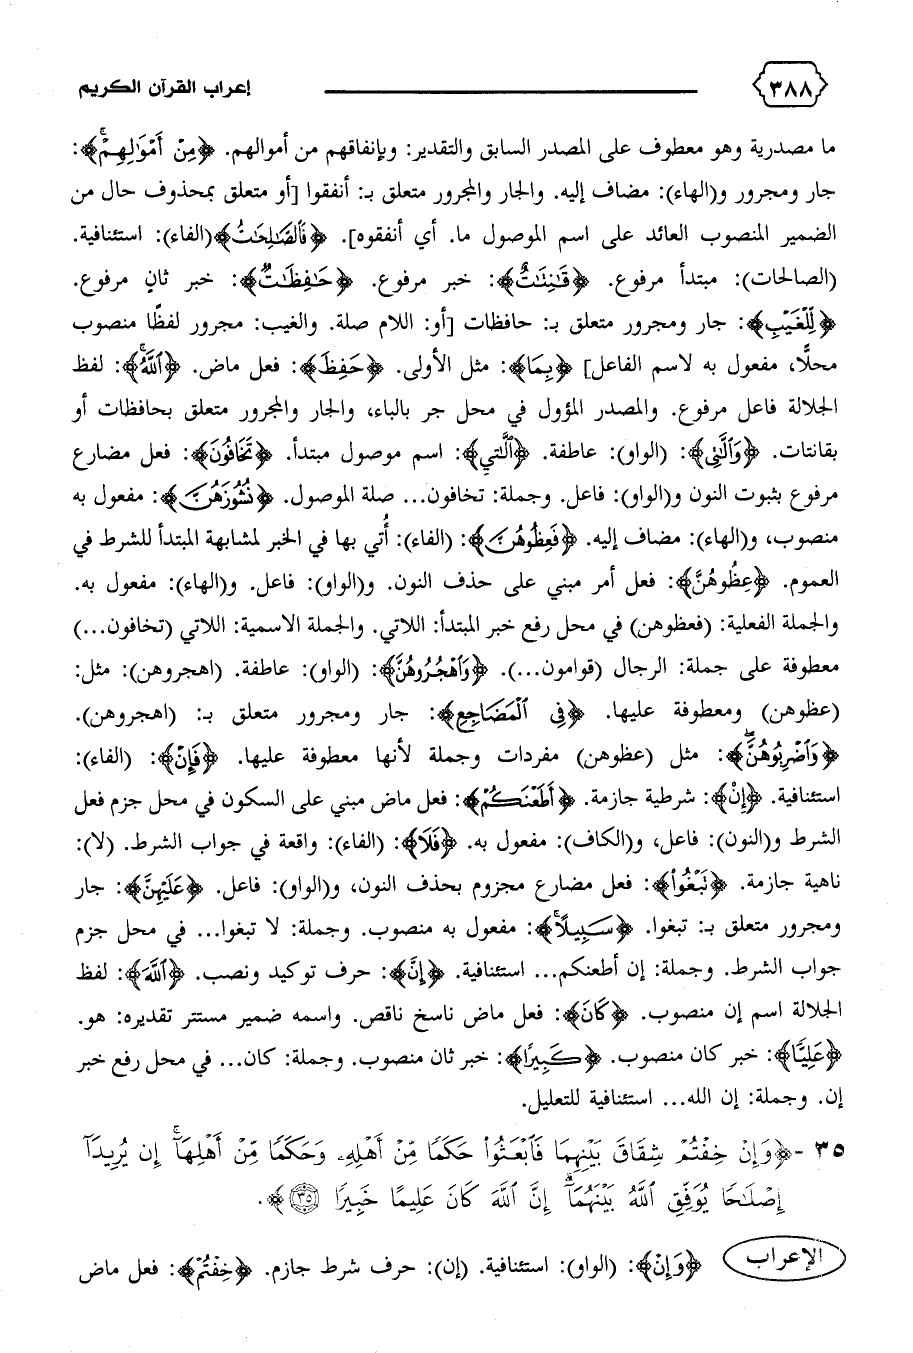 ٣٨٨
إعراب القرآن الكريم
ما مصدرية وهو معطوف على المصدر السابق والتقدير: وبإنفاقهم من أموالهم. ﴿مِنْ أَمْوَٰلِهِمْۚ﴾:
جار ومجرور و(الهاء): مضاف إليه. والجار والمجرور متعلق بـ: أنفقوا [أو متعلق بمحذوف حال من
الضمير المنصوب العائد على اسم الموصول ما. أي أنفقوه]. ﴿فَٱلصَّٰلِحَٰتُ﴾(الفاء): استئنافية.
(الصالحات): مبتدأ مرفوع. ﴿قَٰنِتَٰتٌ﴾: خبر مرفوع. ﴿حَٰفِظَٰتٌ﴾: خبر ثانٍ مرفوع.
﴿لِّلْغَيْبِ﴾: جار ومجرور متعلق بـ: حافظات [أو: اللام صلة. والغيب: مجرور لفظًا منصوب
محلًّا، مفعول به لاسم الفاعل] ﴿بِمَا﴾: مثل الأولى. ﴿حَفِظَ﴾: فعل ماض. ﴿ٱللَّهُۚ﴾: لفظ
الجلالة فاعل مرفوع. والمصدر المؤول في محل جر بالباء، والجار والمجرور متعلق بحافظات أو
بقانتات. ﴿وَٱلَّٰتِى﴾: (الواو): عاطفة. ﴿ٱلَّتِي﴾: اسم موصول مبتدأ. ﴿تَخَافُونَ﴾: فعل مضارع
مرفوع بثبوت النون و(الواو): فاعل. وجملة: تخافون... صلة الموصول. ﴿نُشُوزَهُنَّ﴾: مفعول به
منصوب، و(الهاء): مضاف إليه. ﴿فَعِظُوهُنَّ﴾: (الفاء): أُتي بها في الخبر لمشابهة المبتدأ للشرط في
العموم. ﴿عِظُوهُنَّ﴾: فعل أمر مبني على حذف النون. و(الواو): فاعل. و(الهاء): مفعول به.
والجملة الفعلية: (فعظوهن) في محل رفع خبر المبتدأ: اللاتي. والجملة الاسمية: اللاتي (تخافون...)
معطوفة على جملة: الرجال (قوامون...). ﴿وَٱهْجُرُوهُنَّ﴾: (الواو): عاطفة. (اهجروهن): مثل:
(عظوهن) ومعطوفة عليها. ﴿فِى ٱلْمَضَاجِعِ﴾: جار ومجرور متعلق بـ: (اهجروهن).
﴿وَٱضْرِبُوهُنَّۖ﴾: مثل (عظوهن) مفردات وجملة لأنها معطوفة عليها. ﴿فَإِنْ﴾: (الفاء):
استئنافية. ﴿إِنْ﴾: شرطية جازمة. ﴿أَطَعْنَكُمْ﴾: فعل ماض مبني على السكون في محل جزم فعل
الشرط و(النون): فاعل، و(الكاف): مفعول به. ﴿فَلَا﴾: (الفاء): واقعة في جواب الشرط. (لا):
ناهية جازمة. ﴿تَبْغُوا۟﴾: فعل مضارع مجزوم بحذف النون، و(الواو): فاعل. ﴿عَلَيْهِنَّ﴾: جار
ومجرور متعلق بـ: تبغوا. ﴿سَبِيلًاۗ﴾: مفعول به منصوب. وجملة: لا تبغوا... في محل جزم
جواب الشرط. وجملة: إن أطعنكم... استئنافية. ﴿إِنَّ﴾: حرف توكيد ونصب. ﴿ٱللَّهَ﴾: لفظ
الجلالة اسم إن منصوب. ﴿كَانَ﴾: فعل ماض ناسخ ناقص. واسمه ضمير مستتر تقديره: هو.
﴿عَلِيًّا﴾: خبر كان منصوب. ﴿كَبِيرًا﴾: خبر ثان منصوب. وجملة: كان... في محل رفع خبر
إن. وجملة: إن الله... استئنافية للتعليل.
٣٥ -﴿وَإِنْ خِفْتُمْ شِقَاقَ بَيْنِهِمَا فَٱبْعَثُوا۟ حَكَمًا مِّنْ أَهْلِهِۦ وَحَكَمًا مِّنْ أَهْلِهَآۚ إِن يُرِيدَآ
إِصْلَٰحًا يُوَفِّقِ ٱللَّهُ بَيْنَهُمَآۗ إِنَّ ٱللَّهَ كَانَ عَلِيمًا خَبِيرًا ٣٥﴾.
الإعراب ﴿وَإِنْ﴾: (الواو): استئنافية. (إن): حرف شرط جازم. ﴿خِفْتُمْ﴾: فعل ماض